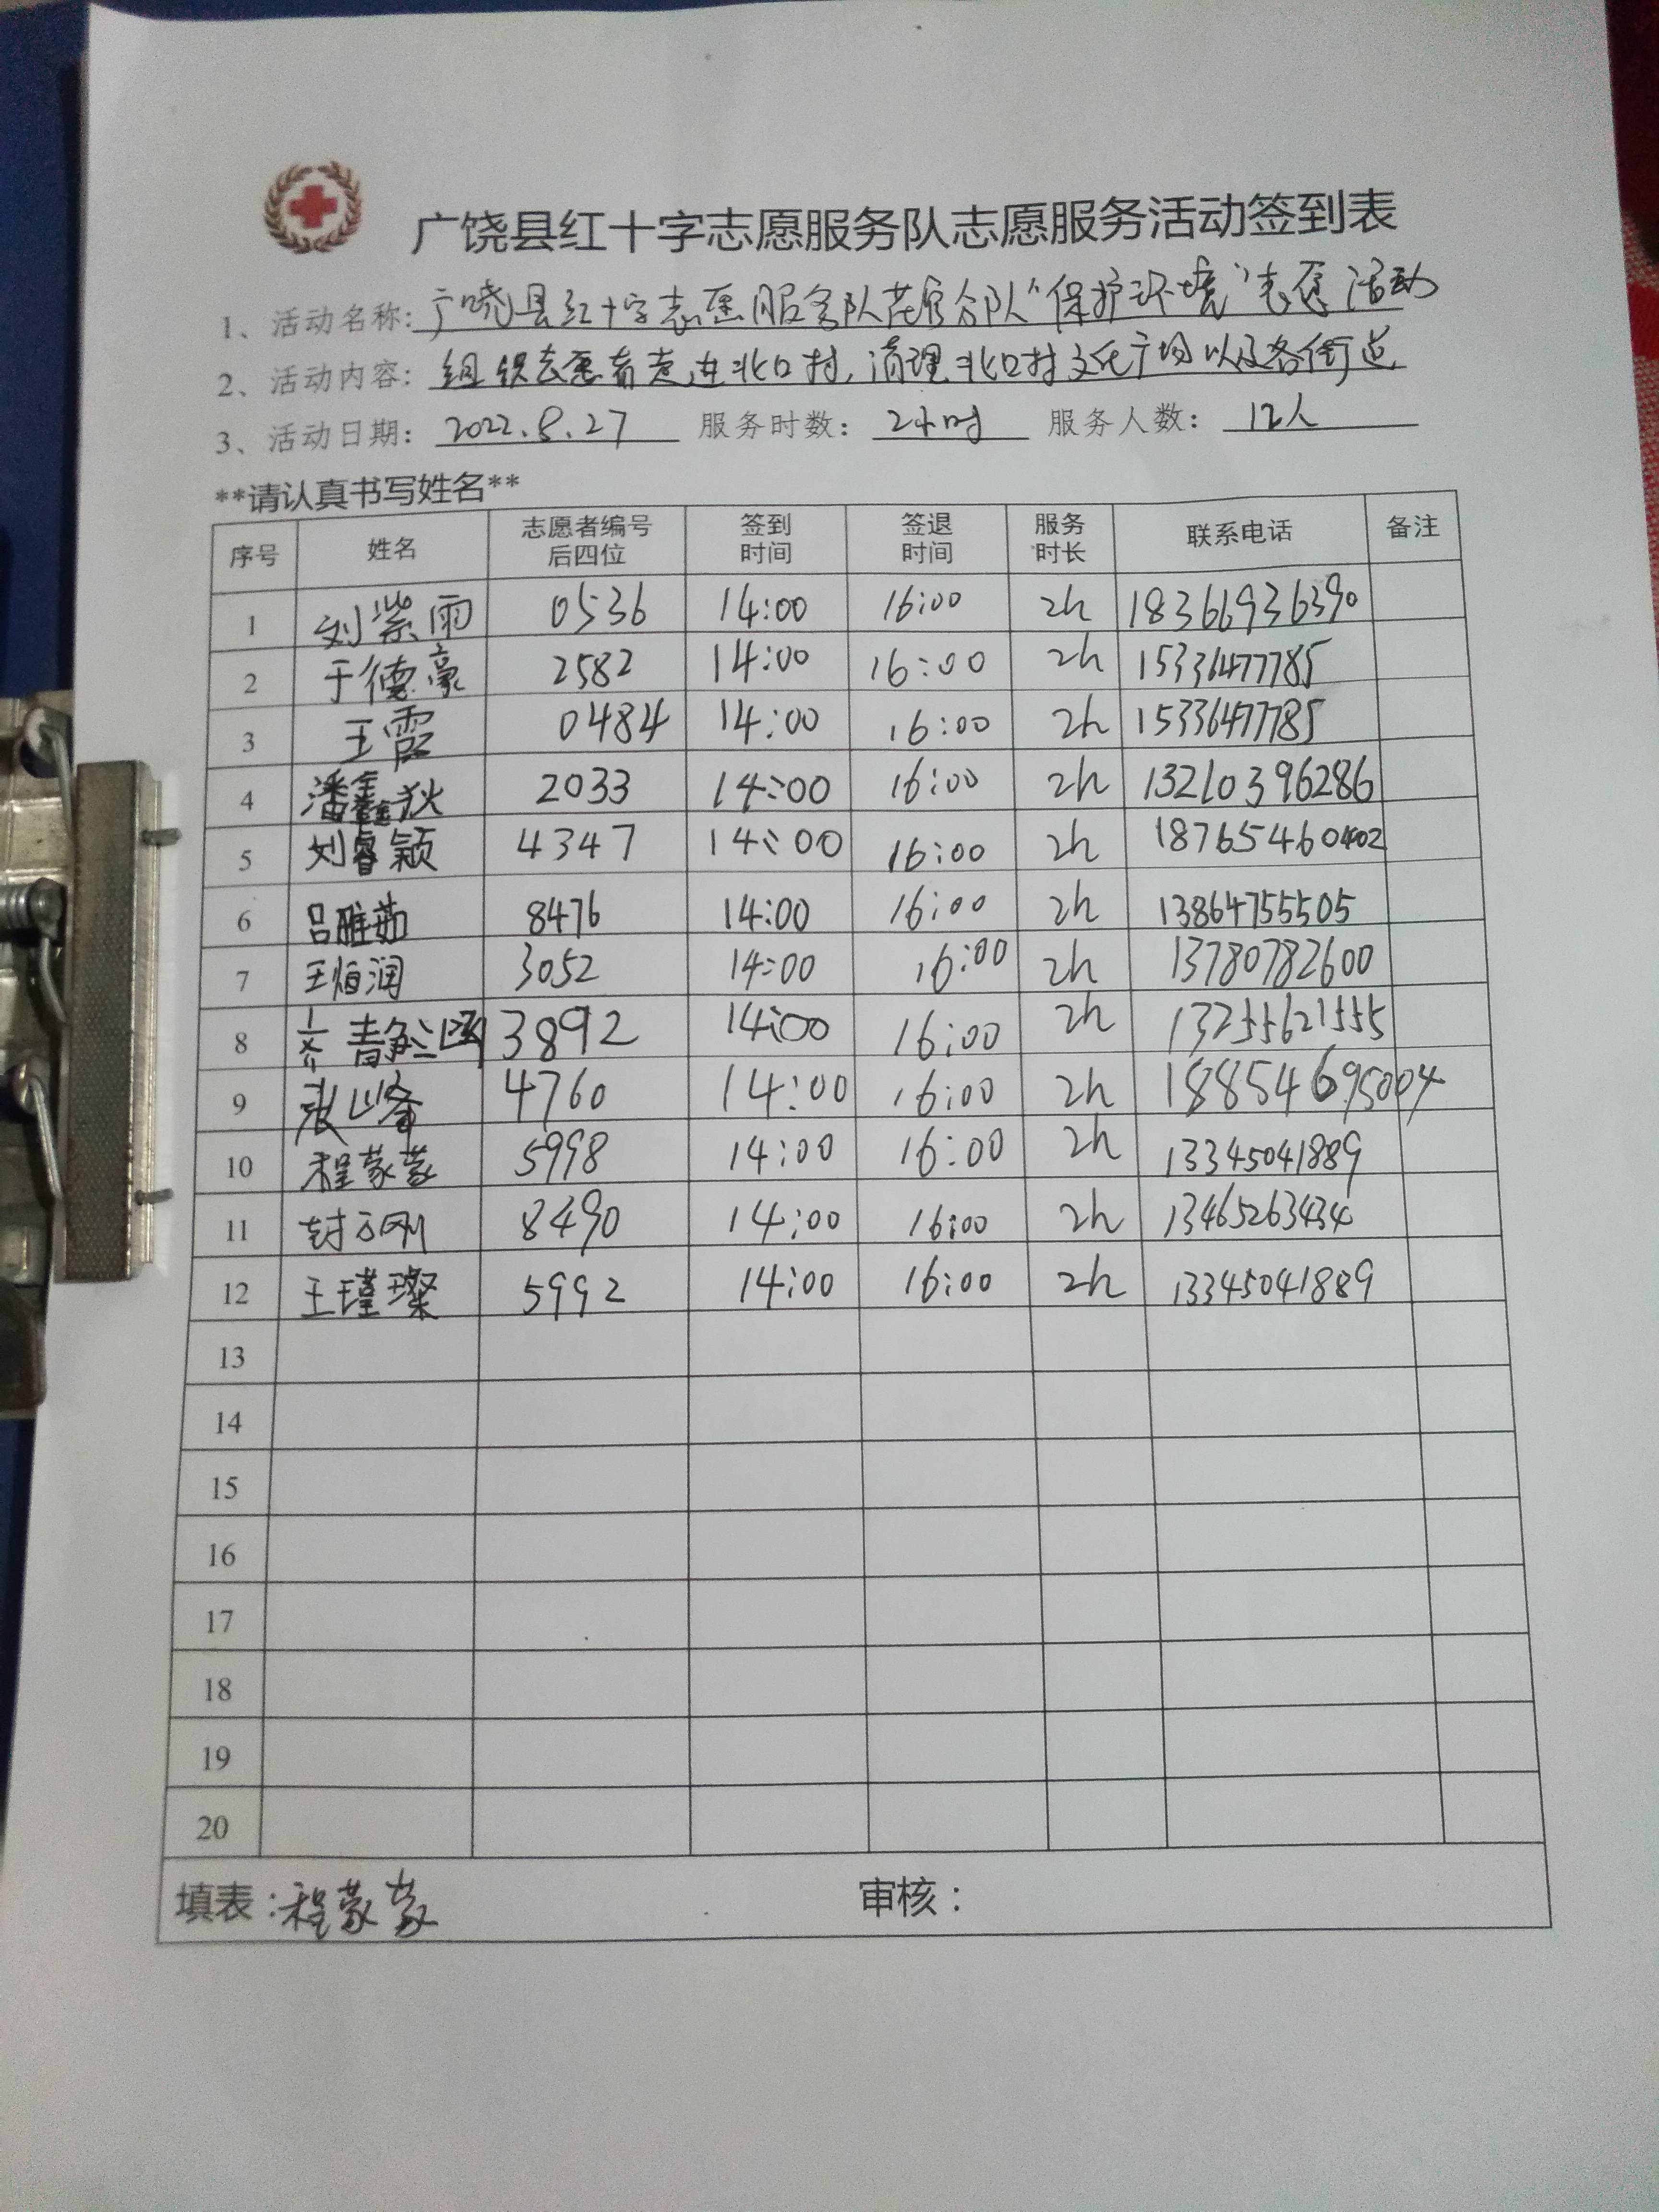 广饶县红十字志愿服务队志愿服务活动签到表
1、活动名称:广饶县红十字志愿服务队花官分队“保护环境”志愿活动
2、活动内容:组织志愿者走进北口村,清理北口村文化广场以及各街道
3、活动日期:2022.8.27 服务时数:2小时 服务人数:12人
**请认真书写姓名**
序号 姓名 志愿者编号后四位 签到时间 签退时间 服务时长 联系电话 备注
1 刘紫雨 0536 14:00 16:00 2h 18366936390
2 于德豪 2582 14:00 16:00 2h 15336477785
3 王霞 0484 14:00 16:00 2h 15336477785
4 潘鑫狄 2033 14:00 16:00 2h 13210396286
5 刘睿颖 4347 14:00 16:00 2h 18765460402
6 吕雅茹 8476 14:00 16:00 2h 13864755505
7 王恒润 3052 14:00 16:00 2h 13780782600
8 齐静涵 3892 14:00 16:00 2h 13255621555
9 张峰 4760 14:00 16:00 2h 18854695004
10 程蒙蒙 5998 14:00 16:00 2h 13345041889
11 封刚 8490 14:00 16:00 2h 13465263434
12 王瑾璨 5992 14:00 16:00 2h 13345041889
13
14
15
16
17
18
19
20
填表:程蒙蒙 审核: